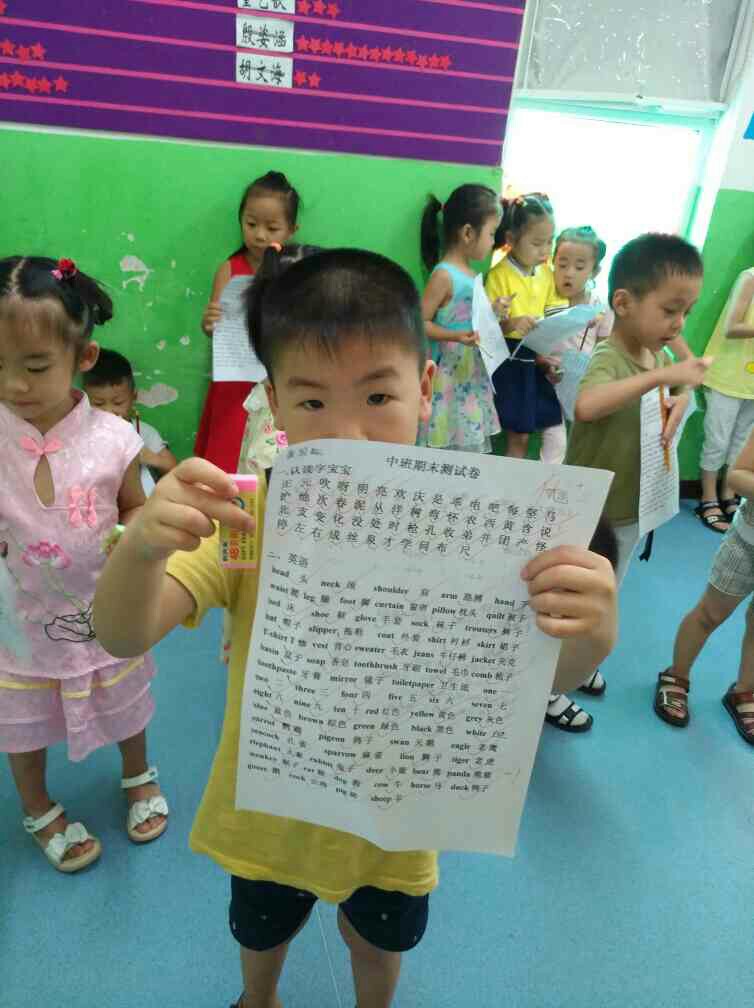 殷姿涵
胡文海
中班期末测试卷
一、认读字宝宝
正 元 吹 呀 朋 亮 欢 庆 是 毛 电 吧 每 坚 鸟
护 他 次 春 泥 丛 祥 树 弯 怀 农 西 黄 含 说
此 支 变 化 没 处 时 桧 孔 收 弟 并 团 产 怪
停 左 右 成 丝 泉 才 学 问 布 尺
二、英语
head 头 neck 颈 shoulder 肩 arm 胳膊 hand 手
waist 腰 leg 腿 foot 脚 curtain 窗帘 pillow 枕头 quilt 被子
bed 床 shoe 鞋 glove 手套 sock 袜子 trousers 裤子
hat 帽子 slipper 拖鞋 coat 外套 shirt 衬衫 skirt 裙子
T-shirt T恤 vest 背心 sweater 毛衣 jeans 牛仔裤 jacket 夹克
basin 盆子 soap 香皂 toothbrush 牙刷 towel 毛巾 comb 梳子
toothpaste 牙膏 mirror 镜子 toiletpaper 卫生纸 one 一
two 二 three 三 four 四 five 五 six 六 seven 七
eight 八 nine 九 ten 十 red 红色 yellow 黄色 grey 灰色
blue 蓝色 brown 棕色 green 绿色 black 黑色 white 白色
parrot 鹦鹉 pigeon 鸽子 swan 天鹅 eagle 老鹰
peacock 孔雀 sparrow 麻雀 lion 狮子 tiger 老虎
elephant 大象 rabbit 兔子 deer 小鹿 bear 熊 panda 熊猫
monkey 猴子 cat 猫 dog 狗 cow 牛 horse 马 duck 鸭子
goose 鹅 cock 公鸡 pig 猪 sheep 羊